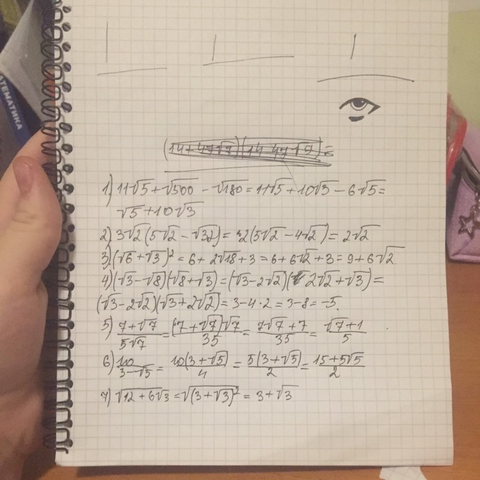 МАТЕМАТИКА
1) 11√5 + √500 - √180 = 11√5 + 10√3 - 6√5 =
√5 + 10√3
2) 3√2(5√2 - √32) = 2(5√2 - 4√2) = 2√2
3) (√6 + √3)² = 6 + 2√18 + 3 = 6 + 6√2 + 3 = 9 + 6√2
4) (√3 - √8)(√8 + √3) = (√3 - 2√2)(2√2 + √3) =
(√3 - 2√2)(√3 + 2√2) = 3 - 4·2 = 3 - 8 = -5.
5) (7+√7)/(5√7) = (7+√7)√7/35 = (7√7+7)/35 = (√7+1)/5
6) 10/(3-√5) = 10(3+√5)/4 = 5(3+√5)/2 = (15+5√5)/2
7) √12+6√3 = √(3+√3)² = 3+√3